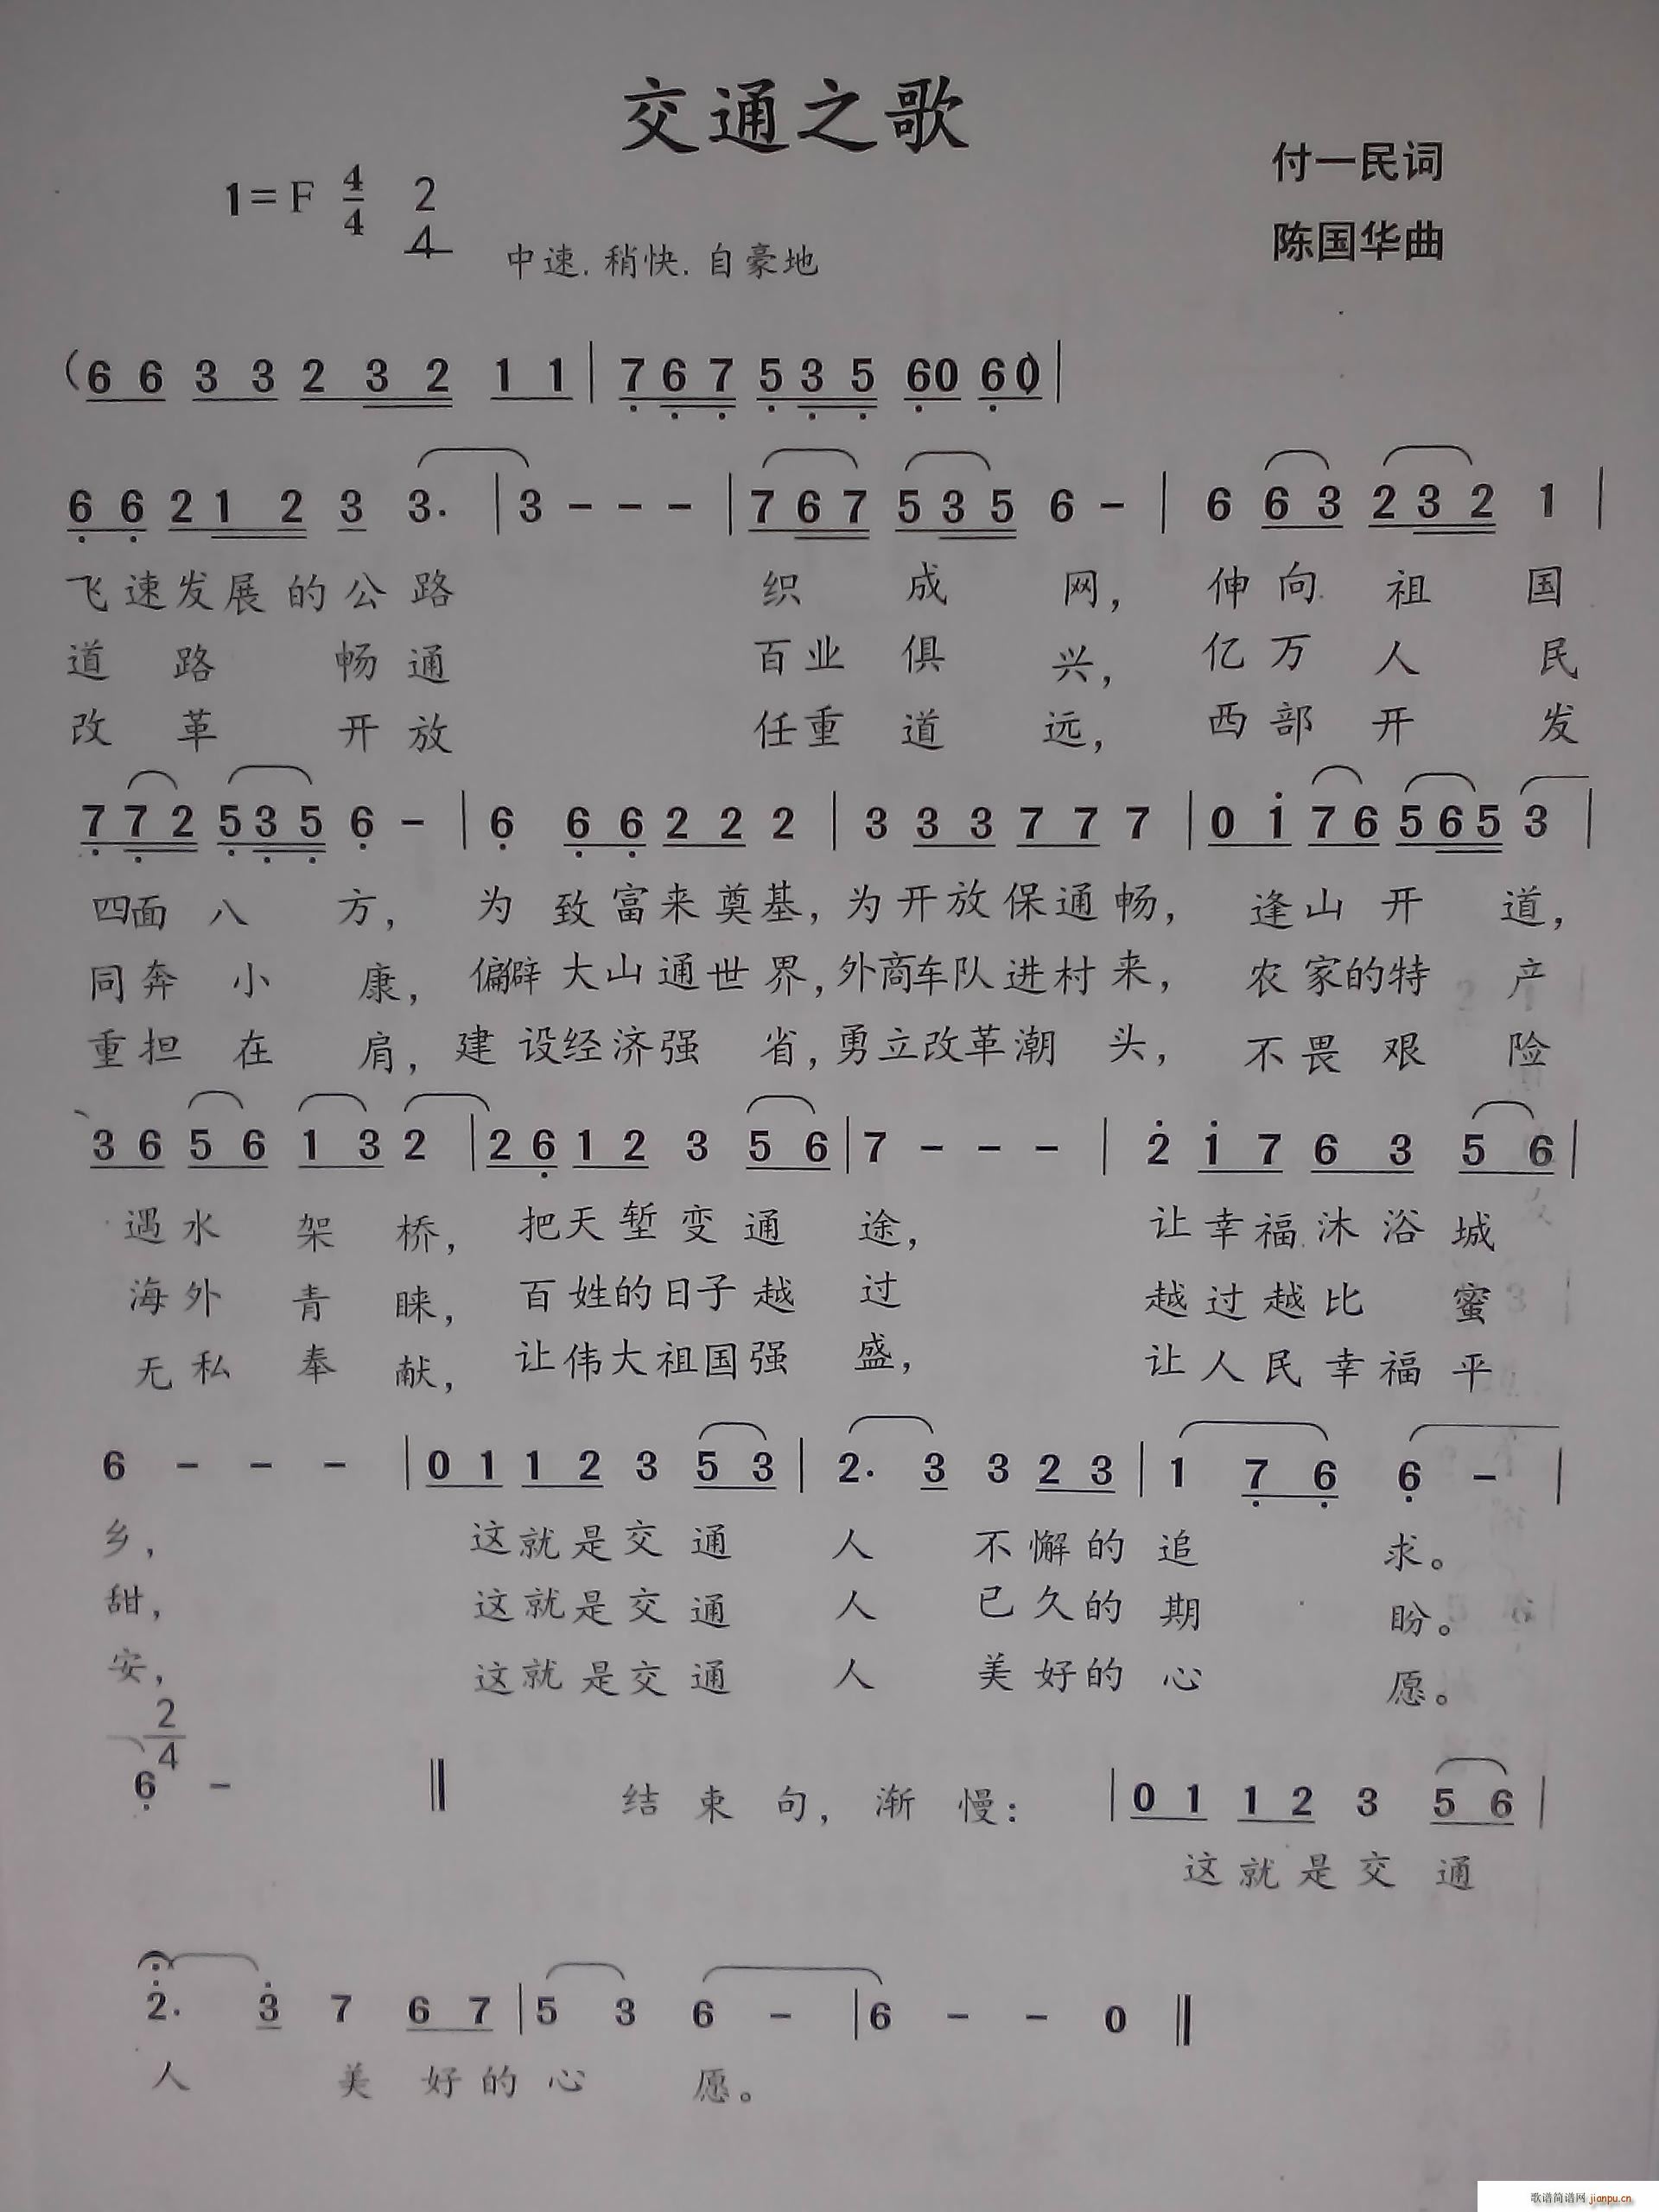 交通之歌
1=F 4/4 2/4
付一民词
陈国华曲
中速.稍快.自豪地
(6 6 3 3 2 3 2 1 1 | 7 6 7 5 3 5 60 60) |
6 6 2 1 2 3 3. | 3 - - - | 7 6 7 5 3 5 6 - | 6 6 3 2 3 2 1 |
飞速发展的公路 织成网,伸向祖国
道路畅通 百业俱兴,亿万人民
改革开放 任重道远,西部开发
7 7 2 5 3 5 6 - | 6 6 6 2 2 2 2 | 3 3 3 7 7 7 | 0 1 7 6 5 6 5 3 |
四面八方,为致富来奠基,为开放保通畅,逢山开道,
同奔小康,偏僻大山通世界,外商车队进村来,农家的特产
重担在肩,建设经济强省,勇立改革潮头,不畏艰险
3 6 5 6 1 3 2 | 2 6 1 2 3 5 6 | 7 - - - | 2 1 7 6 3 5 6 |
遇水架桥,把天堑变通途,让幸福沐浴城
海外青睐,百姓的日子越过 越过越比蜜
无私奉献,让伟大祖国强盛,让人民幸福平
6 - - - | 0 1 1 2 3 5 3 | 2. 3 3 2 3 | 1 7 6 6 - |
乡,这就是交通人不懈的追求。
甜,这就是交通人已久的期盼。
安,这就是交通人美好的心愿。
2/4
6 - ‖ 结束句,渐慢: | 0 1 1 2 3 5 6 |
这就是交通
2. 3 7 6 7 | 5 3 6 - | 6 - - 0 ‖
人美好的心愿。
歌谱简谱网 jianpu.cn